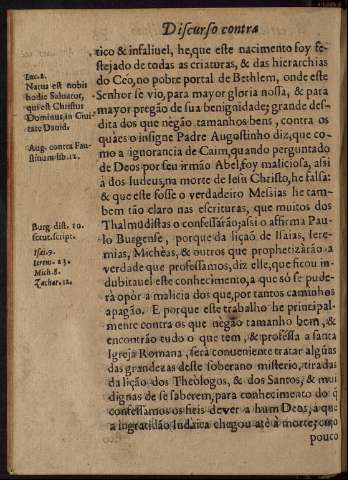 Discurso contra
tico & infaliuel, he, que este nacimento foy fe-
stejado de todas as criaturas, & das hierarchias
do Ceo, no pobre portal de Bethlem, onde este
Senhor se vio, para mayor gloria nossa, & para
mayor pregão de sua benignidade; grande des-
dita dos que negão tamanhos bens, contra os
quàes o insigne Padre Augustinho diz, que co-
mo a ignorancia de Caim, quando perguntado
de Deos por seu irmão Abel, foy maliciosa, assi
à dos Iudeus, na morte de Iesu Christo, he falsa:
& que este fosse o verdadeiro Messias he tam-
bem tão claro nas escrituras, que muitos dos
Thalmudistas o confessarão; assi o affirma Pau-
lo Burgense, porque da liçaõ de Isaias, Iere-
mias, Michèas, & outros que prophetizàrão a
verdade que professamos, diz elle, que ficou in-
dubitauel este conhecimento, a que só se pude-
rà opòr a malicia dos que, por tantos caminhos
apagão. E porque este trabalho he principal-
mente contra os que negão tamanho bem, &
encontrão tudo o que tem, & professa a santa
Igreja Romana, serà conueniente tratar algũas
das grandezas deste soberano misterio, tiradas
da lição dos Theòlogos, & dos Santos, & mui
dignas de se saberem, para conhecimento do q̃
confessamos os fieis dever a hum Deos, a que
a ingratidão Iudaica chegou atè à morte; com
pouco
Luc. 2.
Natus est nobis
hodie Saluator,
qui est Christus
Dominus in Ciui
tate Dauid.
Aug. contra Fau-
stinum lib. 12.
Burg. dist. 10.
scrut. script.
Isai. 9.
Ierem. 23.
Mich. 8.
Zachar. 12.